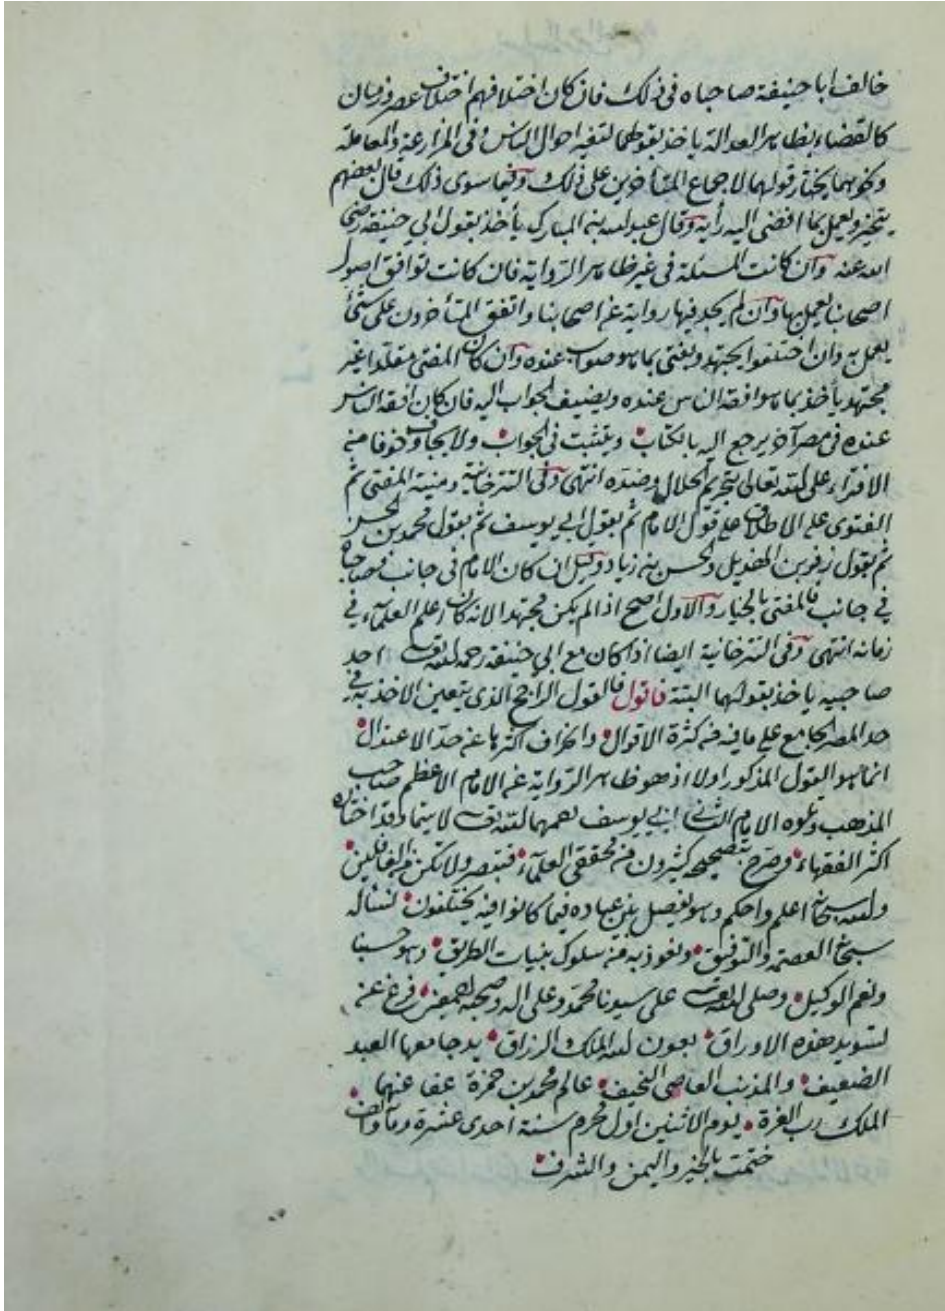 خالف ابا حنيفة صاحباه فى ذلك فان كان اختلافهم اختلاف عصر وزمان
كالقضاء بظاهر العدالة ياخذ بقولهما لتغير احوال الناس وفى المزارعة والمعاملة
ونحوهما يختار قولهما لاجماع المتأخرين على ذلك وفيما سوى ذلك قال بعضهم
يتخير ويعمل بما افضى اليه رأيه وقال عبد الله بن المبارك يأخذ بقول ابي حنيفة رضى
الله عنه وان كانت المسئلة فى غير ظاهر الرواية فان كانت توافق اصول
اصحابنا يعمل بها وان لم يجد فيها رواية عن اصحابنا واتفق المتأخرون على شئ
يعمل به وان اختلفوا يجتهد ويفتى بما هو صواب عنده وان كان المفتى مقلدا غير
مجتهد يأخذ بما هو افقه الناس عنده ويضيف الجواب اليه فان كان افقه الناس
عنده فى مصر آخر يرجع اليه بالكتاب ويتثبت فى الجواب ولا يجازف خوفا من
الافتراء على الله تعالى بتحريم الحلال وضده انتهى وفى التترخانية ومنية المفتى ثم
الفتوى على الاطلاق على قول الامام ثم بقول ابي يوسف ثم بقول محمد بن الحسن
ثم بقول زفر بن الهذيل والحسن بن زياد وقيل ان كان الامام فى جانب وصاحباه
فى جانب فالمفتى بالخيار والاول اصح اذا لم يكن مجتهدا لانه كان اعلم العلماء فى
زمانه انتهى وفى التترخانية ايضا اذا كان مع ابي حنيفة رحمه الله تعالى احد
صاحبيه ياخذ بقولهما البتة فاقول فالقول الراجح الذى يتعين الاخذ به فى
حد المصر الجامع على ما فيه من كثرة الاقوال وانحراف اكثرها عن حد الاعتدال
انما هو القول المذكور اولا اذ هو ظاهر الرواية عن الامام الاعظم صاحب
المذهب وتلوه الامام الثانى ابي يوسف رحمهما الله تعالى لا سيما وقد اختاره
اكثر الفقهاء وصرح بتصحيحه كثيرون من محققى العلماء فتبصر ولا تكن من الغافلين
والله سبحانه اعلم واحكم وهو يفصل بين عباده فيما كانوا فيه يختلفون نسئاله
سبحانه العصمة والتوفيق ونعوذ به من سلوك بنيات الطريق وهو حسبنا
ونعم الوكيل وصلى الله تعالى على سيدنا محمد وعلى اله وصحبه اجمعين فرغ عن
تسويد هذه الاوراق بعون الله الملك الرزاق يد جامعها العبد
الضعيف والمذنب العاصى النحيف عالم محمد بن حمزة عفا عنهما
الملك رب العزة يوم الاثنين اول محرم سنة احدى عشرة ومأة والف
ختمت بالخير واليمن والشرف